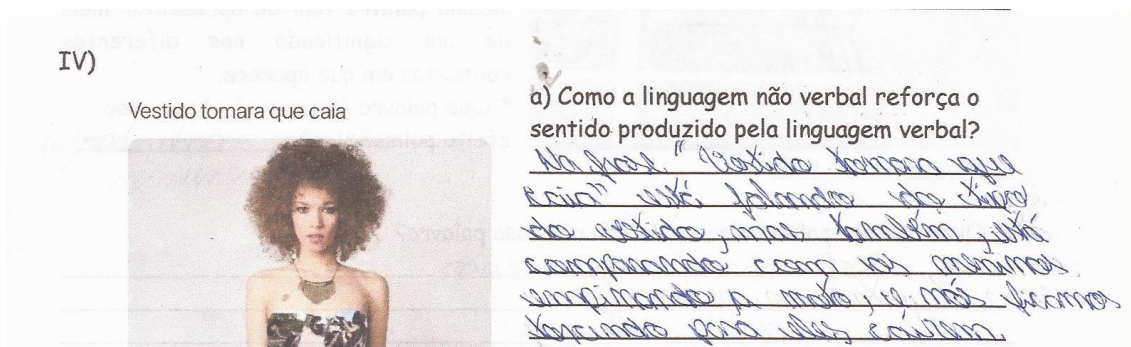 IV)
Vestido tomara que caia
a) Como a linguagem não verbal reforça o
sentido produzido pela linguagem verbal?
Na frase "Vestido tomara que
caia" está falando do tipo
do vestido, mas também, está
comparando com os meninos
empinando a moto, e nós ficamos
torcendo para eles caírem.